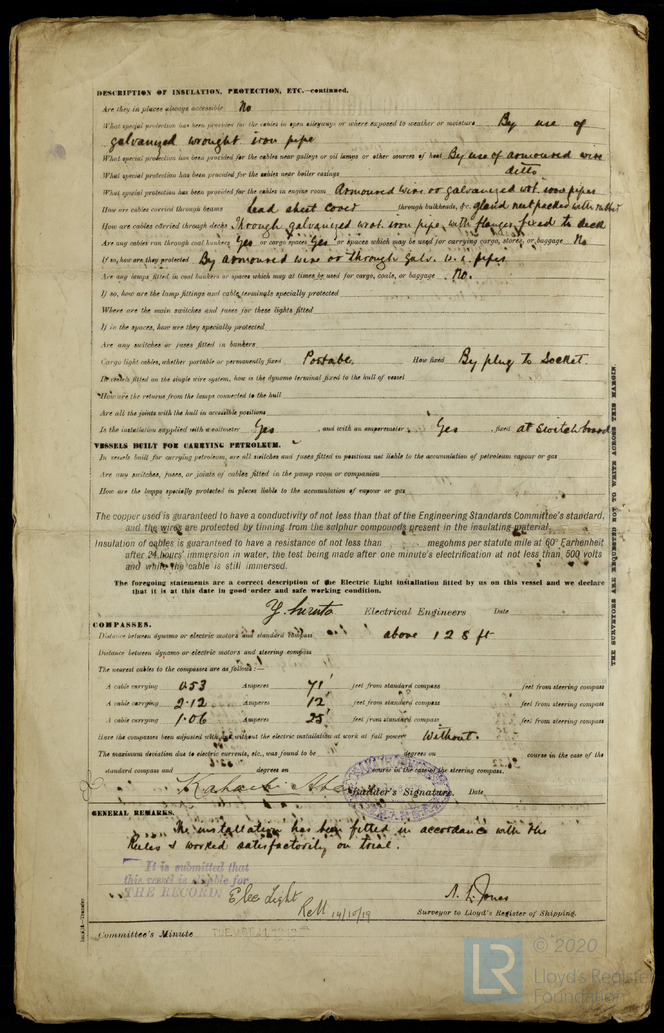 DESCRIPTION OF INSULATION, PROTECTION, ETC.—continued.
Are they in places always accessible No
What special protection has been provided for the cables in open alleyways or where exposed to weather or moisture By use of
galvanized wrought iron pipe
What special protection has been provided for the cables near galleys or oil lamps or other sources of heat By use of armoured wire
What special protection has been provided for the cables near boiler casings ditto
What special protection has been provided for the cables in engine room Armoured wire or galvanized wrot. iron pipes
How are cables carried through beams lead sheet cover through bulkheads, &c. gland nut packed with
How are cables carried through decks Through galvanized wrot. iron pipe with flanges fixed to deck
Are any cables run through coal bunkers Yes or cargo spaces Yes or spaces which may be used for carrying cargo, stores, or baggage No
If so, how are they protected By armoured wire or through galv. w. i. pipes
Are any lamps fitted in coal bunkers or spaces which may at times be used for cargo, coals, or baggage No.
If so, how are the lamp fittings and cable terminals specially protected
Where are the main switches and fuses for these lights fitted
If in the spaces, how are they specially protected
Are any switches or fuses fitted in bunkers
Cargo light cables, whether portable or permanently fixed Portabe. How fixed By plug to Socket
In vessels fitted on the single wire system, how is the dynamo terminal fixed to the hull of vessel
How are the returns from the lamps connected to the hull
Are all the joints with the hull in accessible positions
Is the installation supplied with a voltmeter Yes , and with an amperemeter Yes , fixed at switchboard
VESSELS BUILT FOR CARRYING PETROLEUM.
In vessels built for carrying petroleum, are all switches and fuses fitted in positions not liable to the accumulation of petroleum vapour or gas
Are any switches, fuses, or joints of cables fitted in the pump room or companion
How are the lamps specially protected in places liable to the accumulation of vapour or gas
The copper used is guaranteed to have a conductivity of not less than that of the Engineering Standards Committee's standard,
and the wires are protected by tinning from the sulphur compounds present in the insulating material.
Insulation of cables is guaranteed to have a resistance of not less than megohms per statute mile at 60° Farhenheit
after 24 hours' immersion in water, the test being made after one minute's electrification at not less than 500 volts
and while the cable is still immersed.
The foregoing statements are a correct description of the Electric Light installation fitted by us on this vessel and we declare
that it is at this date in good order and safe working condition.
Electrical Engineers Date
COMPASSES.
Distance between dynamo or electric motors and standard compass above 128 ft
Distance between dynamo or electric motors and steering compass
The nearest cables to the compasses are as follows:—
A cable carrying 0.53 Amperes 71' feet from standard compass feet from steering compass
A cable carrying 2.12 Amperes 12' feet from standard compass feet from steering compass
A cable carrying 1.06 Amperes 25' feet from standard compass feet from steering compass
Have the compasses been adjusted with and without the electric installation at work at full power Without.
The maximum deviation due to electric currents, etc., was found to be degrees on course in the case of the
standard compass and degrees on course in the case of the steering compass.
Builder's Signature. Date
GENERAL REMARKS.
The installation has been fitted in accordance with the
Rules & worked satisfactorily on trial.
It is submitted that
this vessel is eligible for
THE RECORD. Elec Light
14/10/19
Surveyor to Lloyd's Register of Shipping.
Committee's Minute
THE SURVEYORS ARE REQUESTED NOT TO WRITE ACROSS THIS MARGIN.
LR © 2020
Lloyd's Register
Foundation